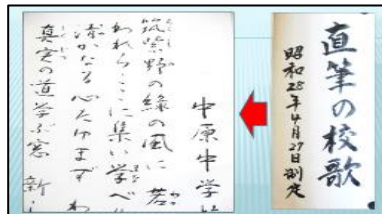 直筆の校歌
昭和28年4月27日制定
中原中学校
筑紫野の緑の風に
われらここに集い学べ
清かなる心たゆまず
真実の道学ぶ窓 新